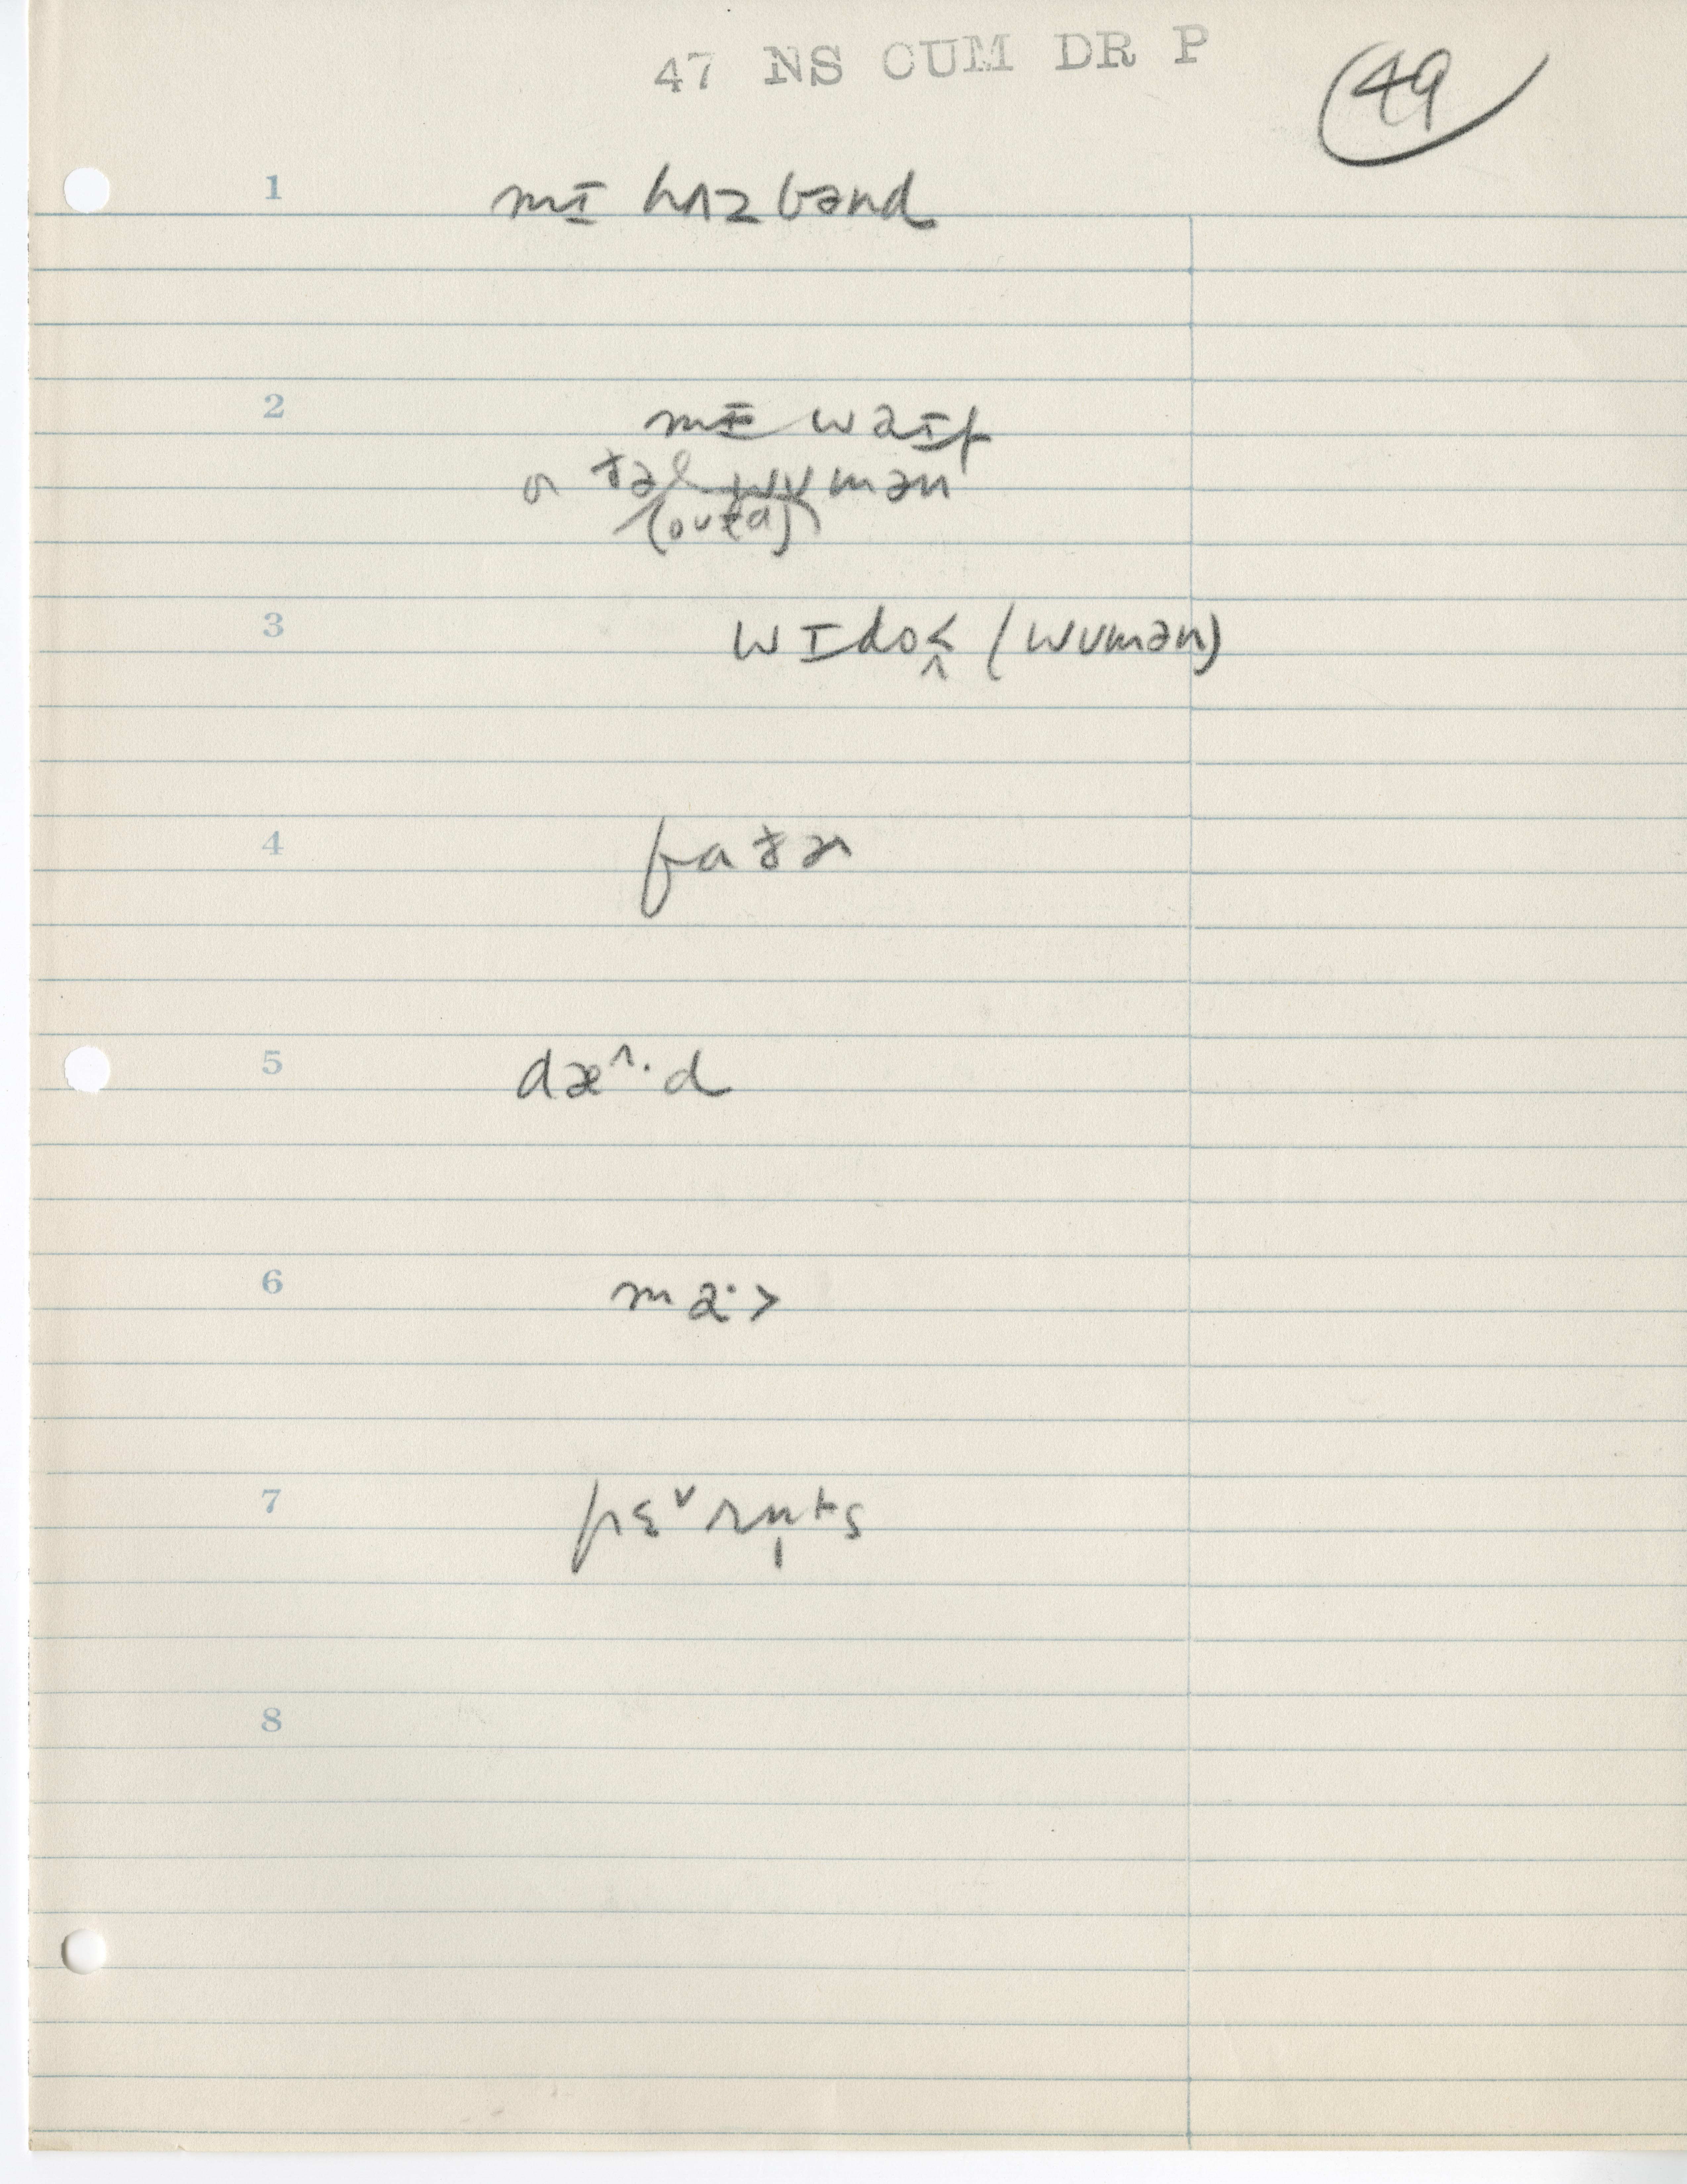 47 NS CUM DR P
49
1 mɪ hʌzbənd
2 mɪ waɪf
wʊmən
3 wɪdo˂ˬ (wʊmən)
4 faðɚ
5 dæ^·d
6 ma·>
7 pɛˇrn̩ts
8